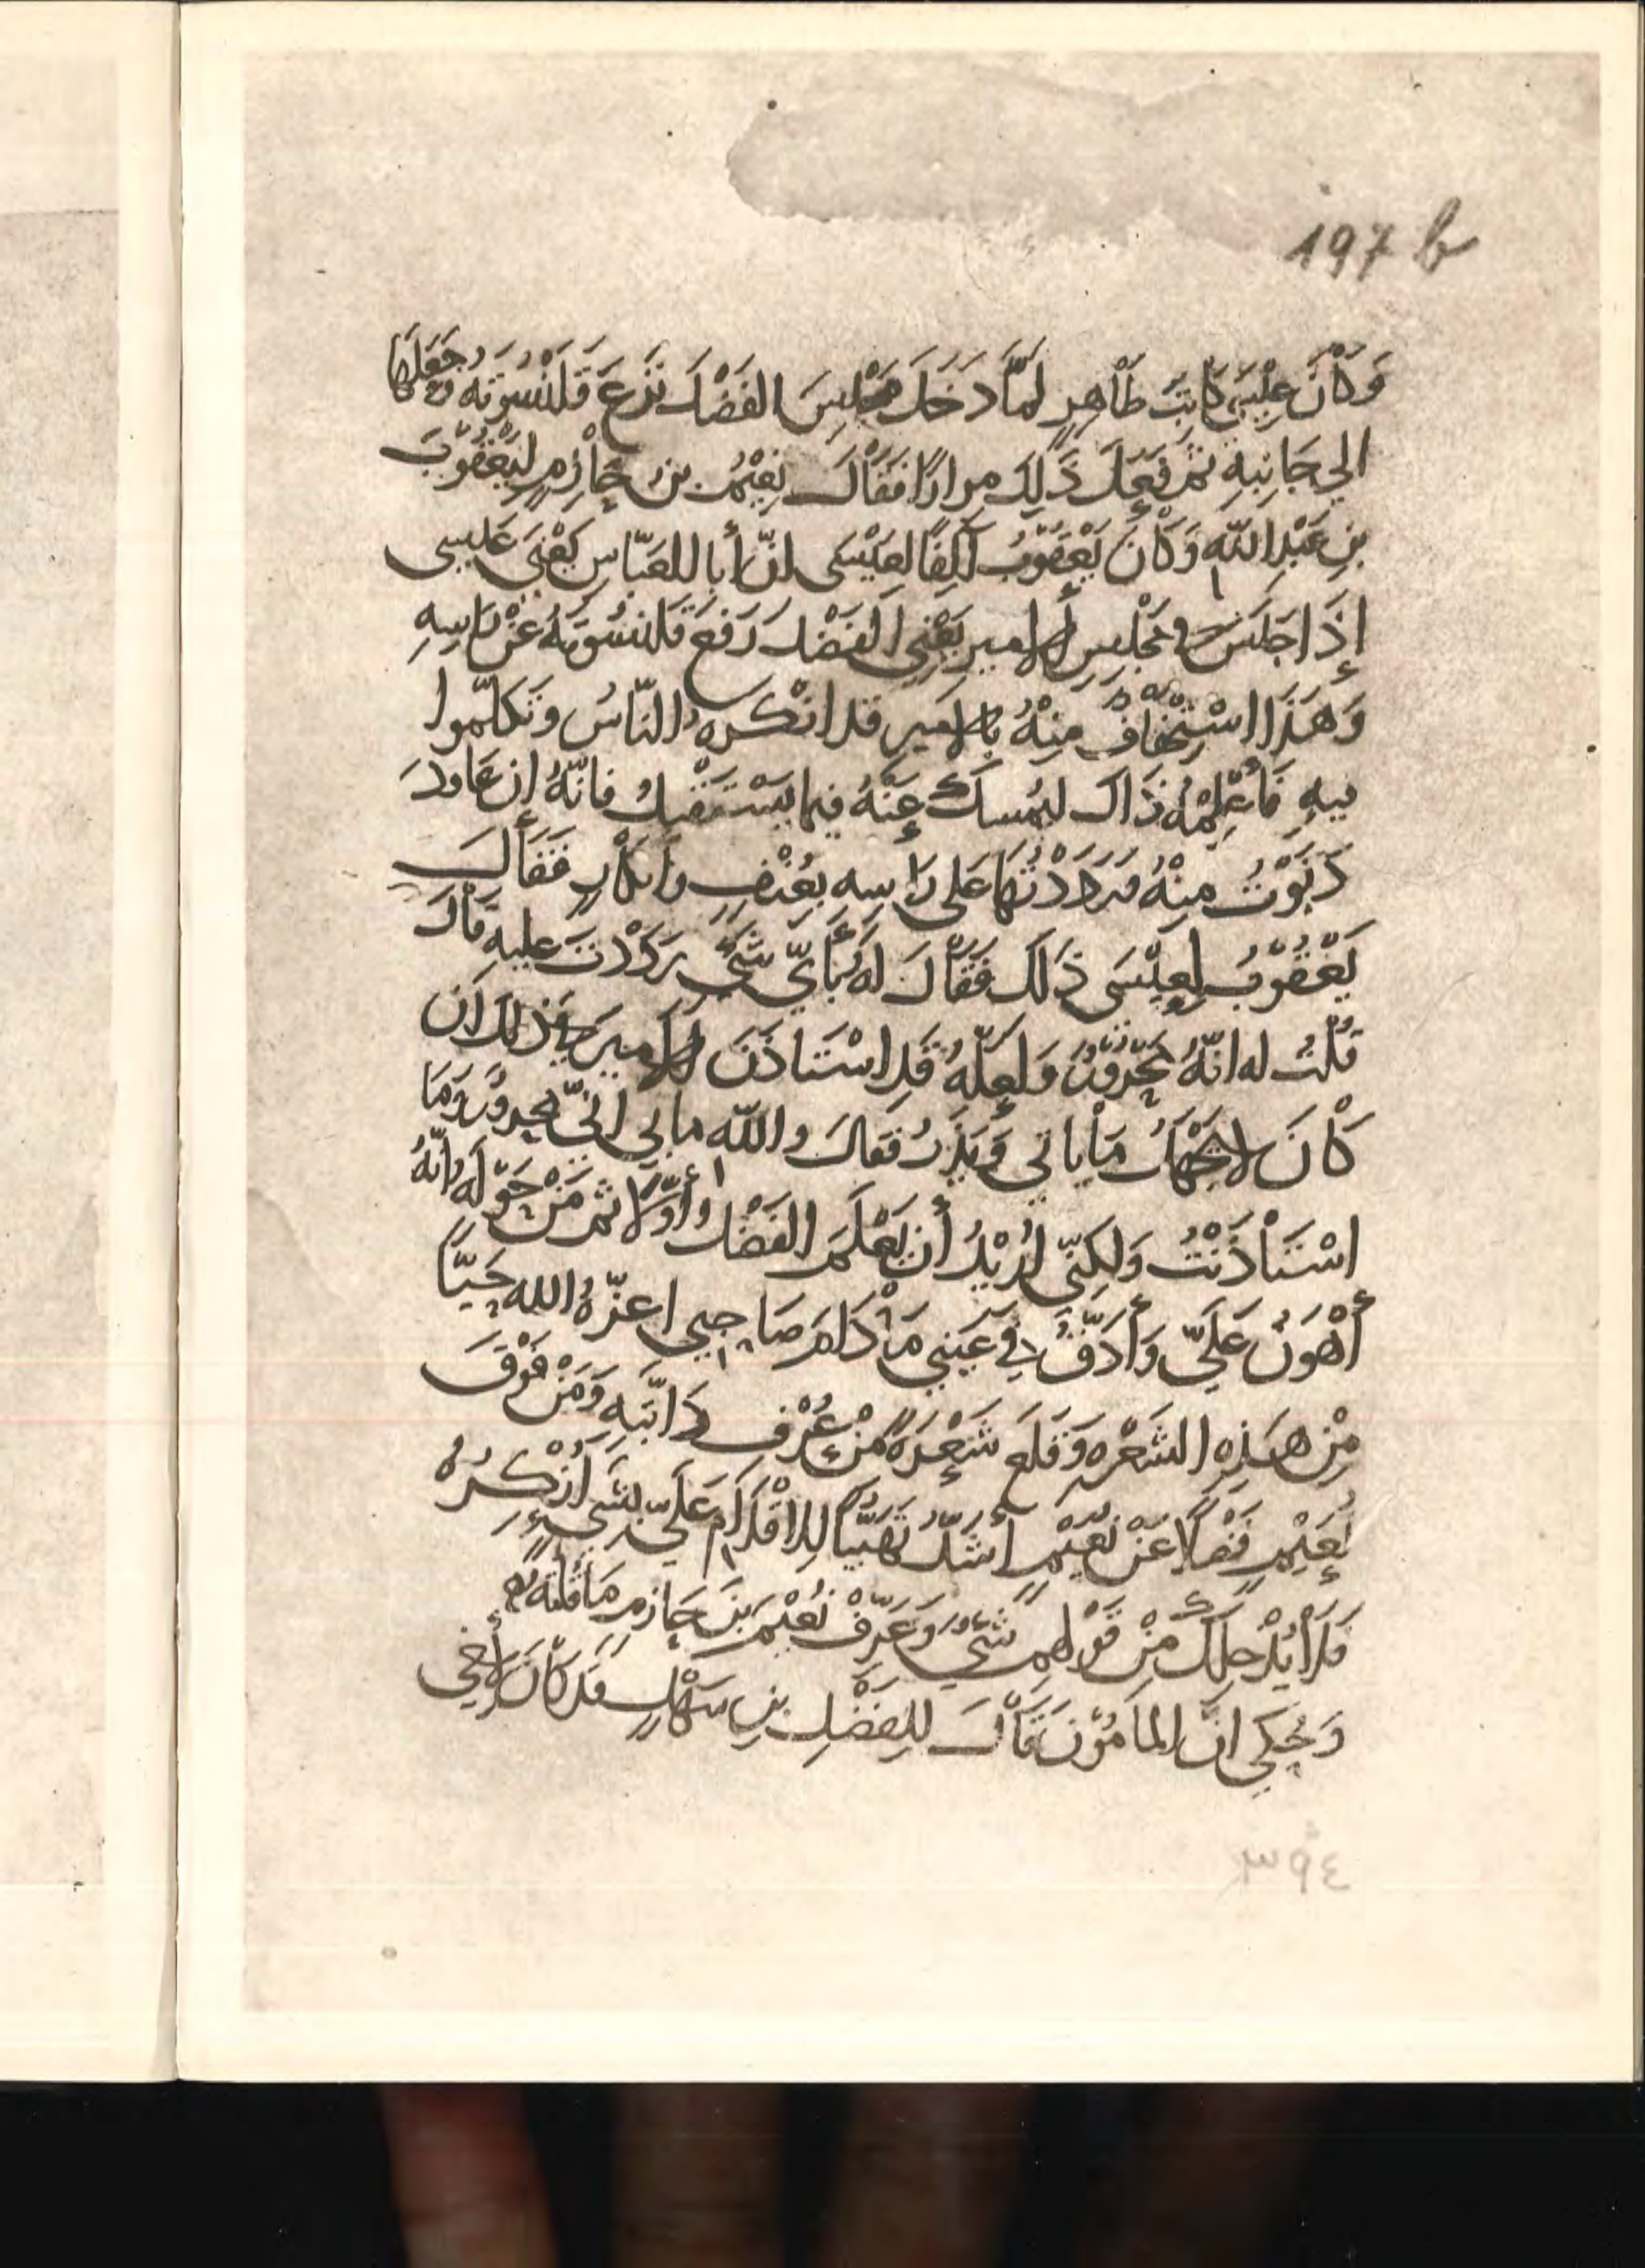 197 b
وَكَانَ عِيْسَى كَاتِبَ طَاهِرٍ لمَّا دَخَلَ مَجْلِسَ الفَضْلِ نَزَعَ قَلَنْسُوَتهُ وَجَعَلَهَا
الي جَانِبِهِ ثم فَعَلَ ذَلِكَ مِرارًا فَقَالَ نعَيْمُ بن حَازِمٍ ليَعْقُوْبَ
بنِ عَبْدِ اللَّهِ وَكَانَ يَعْقوْبُ آلِفًا لعِيْسَى انّ أبا للعَبّاسِ يَعْنِي عَليسى
إِذَا جَلَسَ في مَجْلِسِ الأمير يَعْنِي الفَضْل رَفَعَ قَلَنسُوَتهُ عَنْ رَاسِهِ
وَهَذَا اسْتِخْفَافٌ مِنْهُ بالأمير قد انْكَرهُ النّاسُ وَتكَلّموا
فيهِ فَأعْلِمْهُ ذَاكَ ليُمسك عَنْهُ فيما يَسْتَقْبِلُ فانّهُ إن عَاودَ
دَنَوْتُ مِنْهُ فرَدَدْتُهَا عَلى رَاسِهِ بعُنْفٍ وَانكَارٍ فَقَالَ
يَعْقُوْبُ لِعِيْسَى ذلكَ فَقَالَ لهُ بأيِّ شَيْءٍ رَدَدْتَ عليهِ قَالَ
قُلْتُ له انّهُ مَحْرُوْرٌ وَلعلّهُ قَدِ اسْتَاذَنَ الأميرَ في ذلكَ ان
كَانَ لا يَجْهَلُ مَا يَاتي وَيَذَرُ فَقَالَ واللّه ما بي انّي محرورٌ وَمَا
اسْتَأذَنْتُ وَلكِنّي اُرِيْدُ أن يَعْلَمَ الفَضْلُ أوّلًا ثم مَنْ حَوْلَهُ انّهُ
أهْوَنُ عَلَيّ وَأدَقُّ في عَيْنِي مَا دَامَ صَاحِبي اعزّهُ الله حَيًّا
مِنْ هَذِهِ الشَعْرَه وَقلَعَ شَعْرَةً مِنْ عُرْفِ دَابّتِهِ وَمَنْ فَوْقَ
نُعَيْمٍ فَضْلًا عَنْ نُعَيْمٍ أشَدُّ تَهَيُّبًا لِلإقْدَامِ عَلَيّ بشَيْءٍ اُنْكِرُهُ
فَلا يُدْخِلكَ مِنْ قَوْلِهِم شَيْءٌ وَعَرِّفْ نُعَيْمَ بنَ حَازِمٍ مَا قُلْتهُ
وَيُحْكَى انّ المَامُوْنَ قَالَ لِلفَضْلِ بنِ سَهْلٍ قَد كَانَ لأخي
٣٩٤